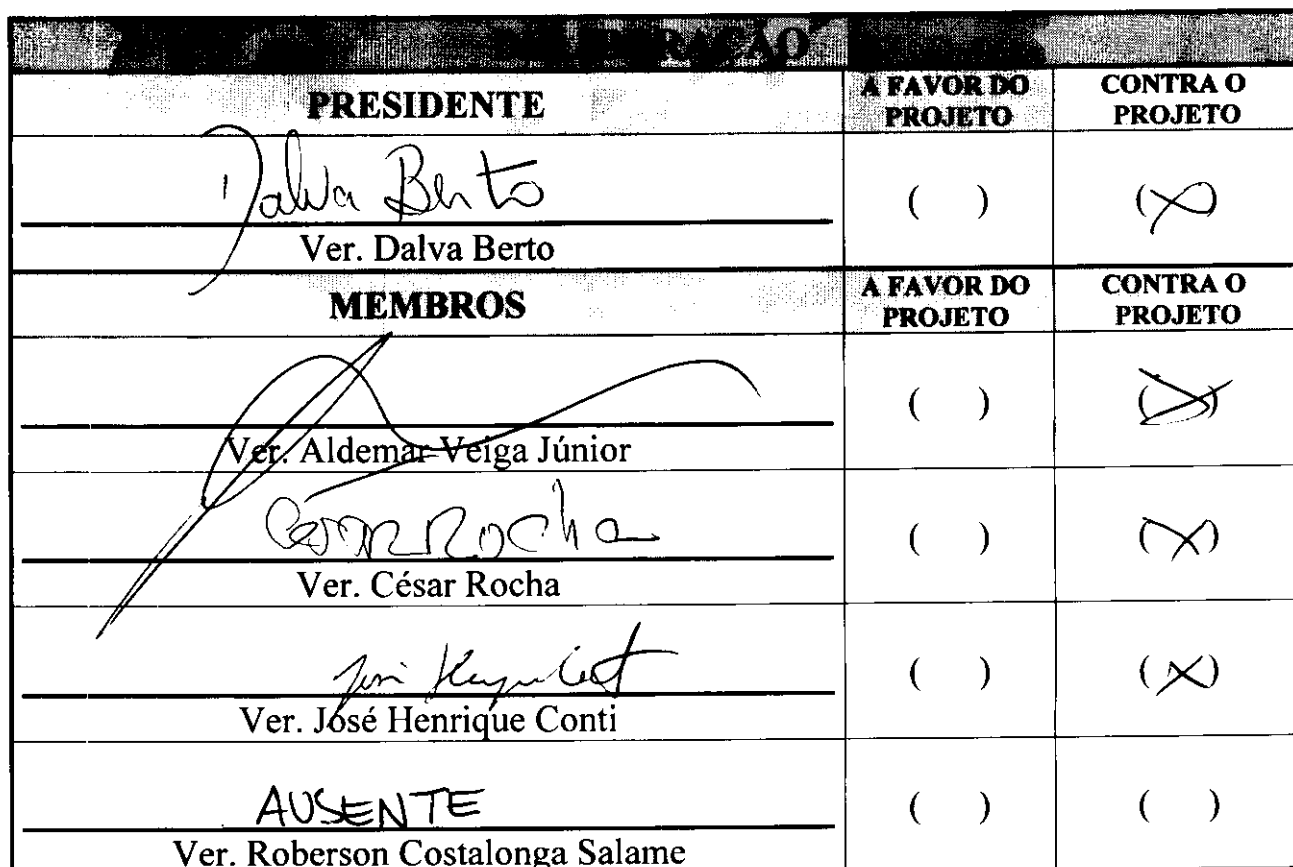 DELIBERAÇÃO
PRESIDENTE A FAVOR DO PROJETO CONTRA O PROJETO
Dalva Berto ( ) (X)
Ver. Dalva Berto
MEMBROS A FAVOR DO PROJETO CONTRA O PROJETO
( ) (X)
Ver. Aldemar Veiga Júnior
César Rocha ( ) (X)
Ver. César Rocha
( ) (X)
Ver. José Henrique Conti
AUSENTE ( ) ( )
Ver. Roberson Costalonga Salame